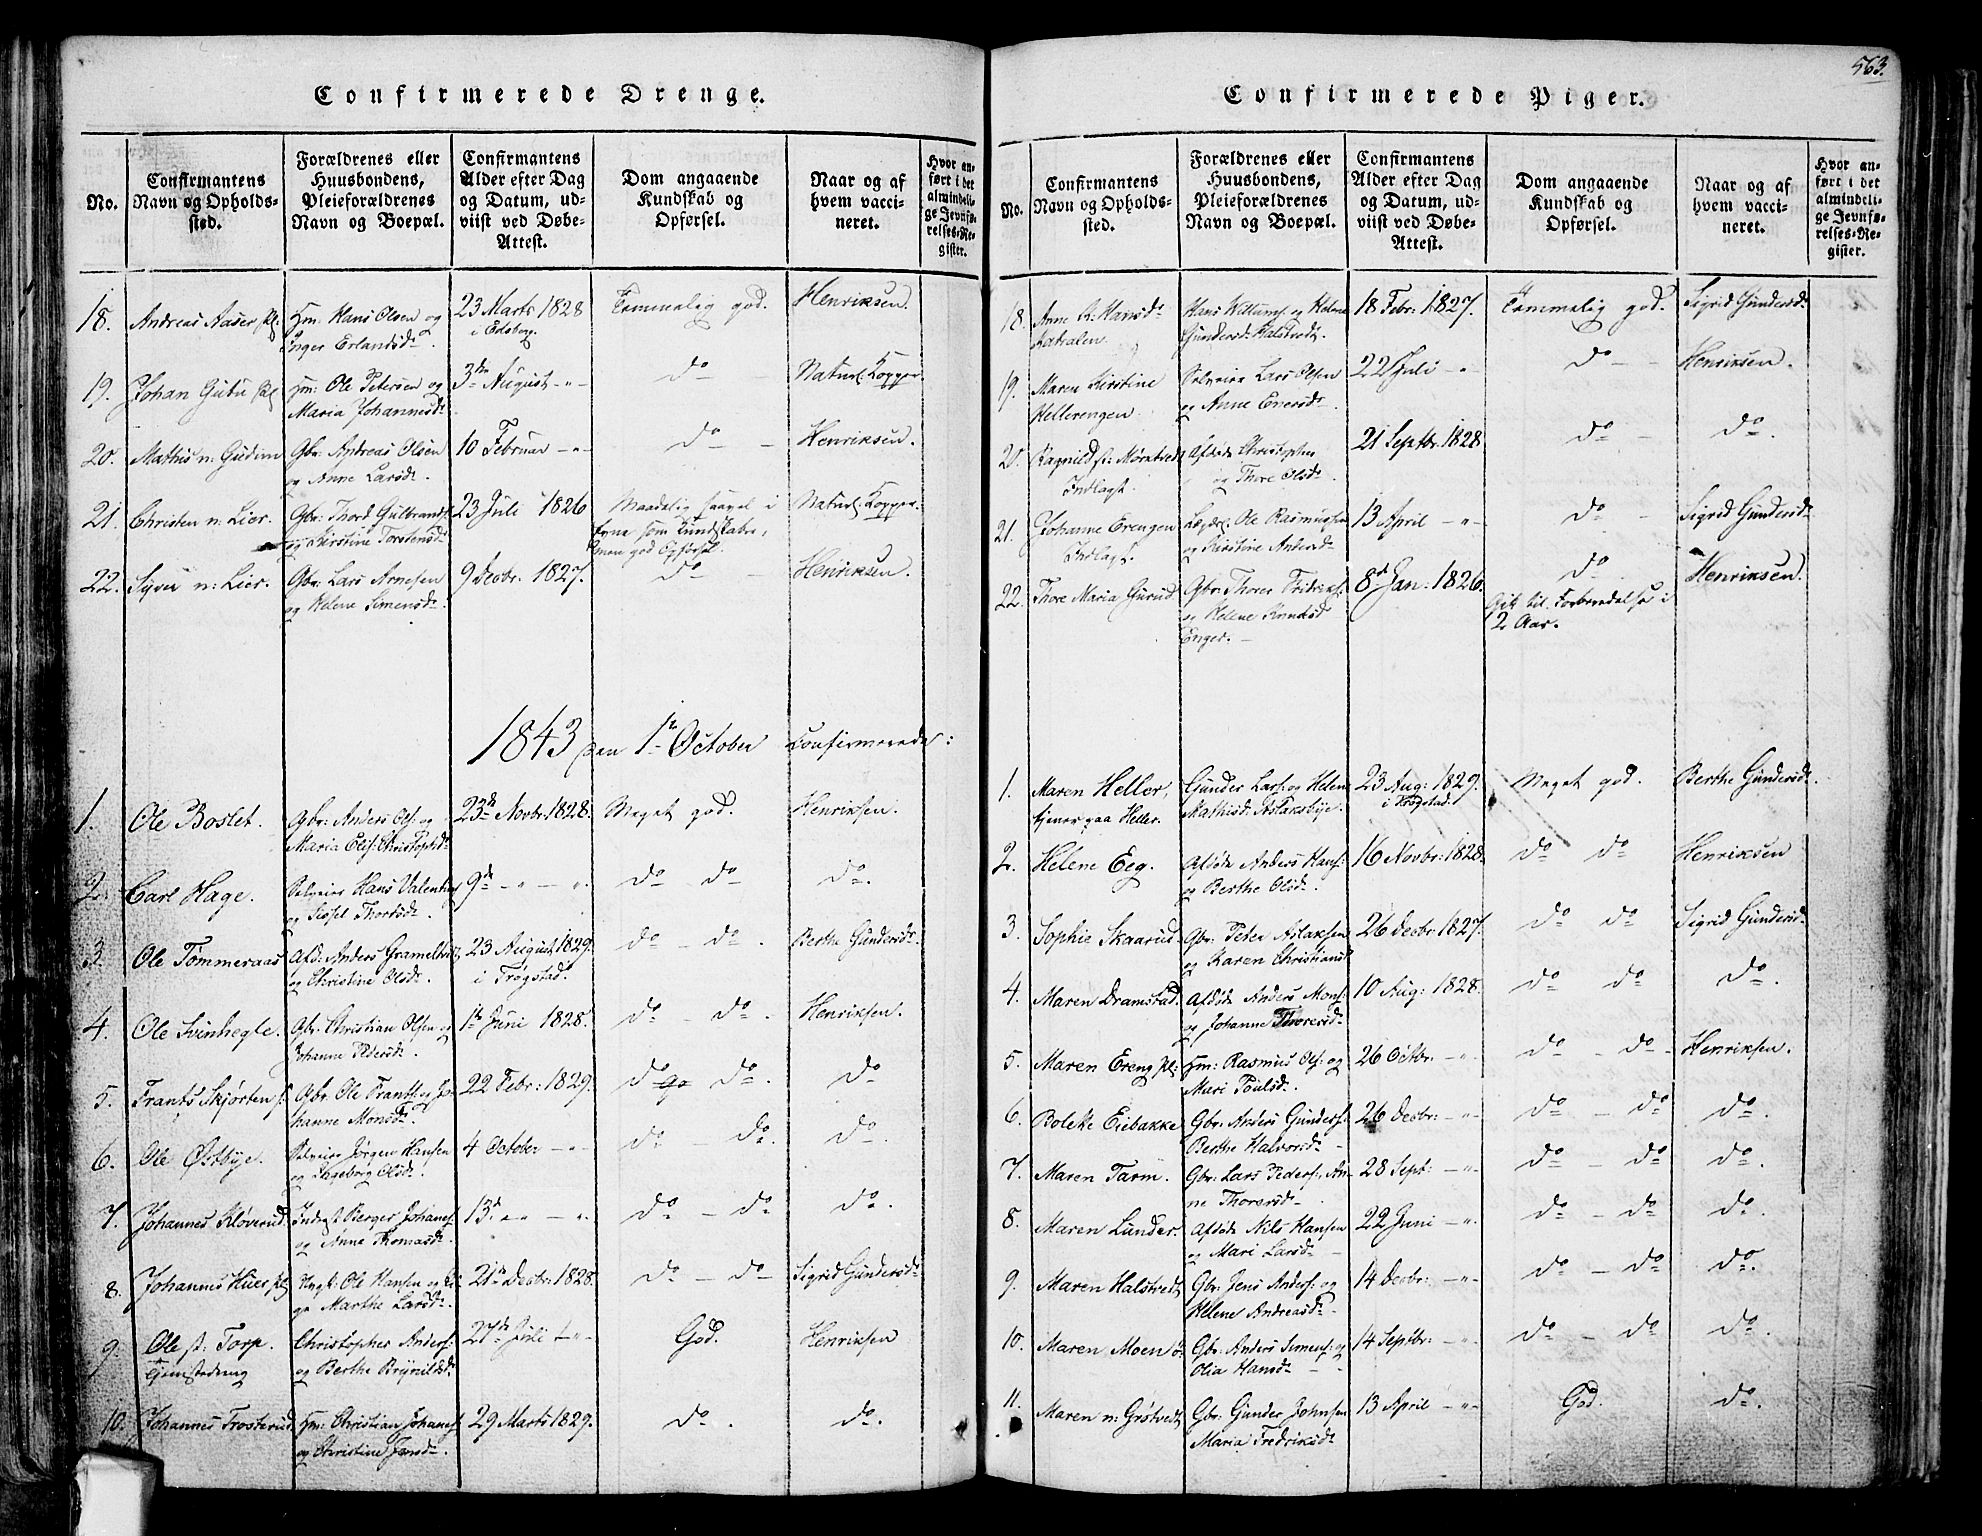 563.
Confirmerede Drenge.
No.
Confirmantens Navn og Opholds-sted.
Forældrenes eller Huusbondens, Pleieforældrenes Navn og Boepæl.
Confirmantens Alder efter Dag og Datum, ud-viist ved Døbe-Attest.
Dom angaaende Kundskab og Opførsel.
Naar og af hvem vacci-neret.
Hvor an-ført i det almindeli-ge Jevnfø-relses-Re-gister.
18. Andreas Aaser pl: Hm: Hans Olsen og 23 Marts 1828 Temmelig god. Henriksen.
Inger Erlandsd. i Edsberg.
19. Johan Gutu pl: Hm: Ole Petersen og 3die August -"- do - Naturl. Kopper
Maria Johannesd.
20. Mathis n: Gudim Gbr: Andreas Olsen 10 Februar -"- do - Henriksen.
og Anne Larsd.
21. Christen n: Lier. Gbr: Thord Gulbrands: 23 Juli 1826 Maadelig saavel i Naturl. Kopper.
og Kirstine Torstensd. Evne som Kundskaber,
men god Opførsel.
22. Syver n: Lier. Gbr: Lars Arnesen 9 Decbr. 1827. do - Henriksen.
og Helene Simensd.
1843 den 1te October Confirmerede:
1. Ole Boslet. Gbr: Anders Ols: og 23de Novbr. 1828. Meget god. Henriksen.
Maria Christophd.
2. Carl Hage. Selveier Hans Valentins 9de -"- -"- do do do.
og Sissel Thordsd.
3. Ole Tømmeraas Afd: Anders Grameltvedt 23 August 1829. do - do. Berthe Gundersd.
og Christine Olsd. i Trøgstad.
4. Ole Svinhegle. Gbr: Christian Olsen og 1te Juni 1828. do - do. Henriksen.
Johanne Pedersd.
5. Frants Skjørten s: Gbr. Ole Frants: og Jo- 22 Febr: 1829. do do. do
hanne Monsd.
6. Ole Østbye. Selveier Jørgen Hansen 4 October -"- do - do. do.
og Ingeborg Olsd.
7. Johannes Kløverud Inderst Berger Johans: 13de -"- -"- do - do do.
og Anne Thomasd.
8. Johannes Huer pl Ole Hansen og 21de Decbr: 1828. do - do - Sigrid Gundersd.
Marthe Larsd.
9. Ole st: Torp. Christopher Anders: 27de Juli -"- God. Henriksen
Tjenstedreng og Berthe Brynildsd.
10. Johannes Frosterud Hm: Christian Johans: 29 Marts 1829. do. do.
og Christine Jensd.
Confirmerede Piger.
No.
Confirmantens Navn og Opholds-sted.
Forældrenes eller Huusbondens, Pleieforældrenes Navn og Boepæl.
Confirmantens Alder efter Dag og Datum, ud-viist ved Døbe-Attest.
Dom angaaende Kundskab og Opførsel.
Naar og af hvem vacci-neret.
Hvor an-ført i det almindeli-ge Jevnfø-relses-Re-gister.
18. Anne K. Hansd. Hans Willums: og Helene 18 Febr: 1827. Temmelig god. Sigrid Gundersd.
Katralen. Gundersd. Halstvedt.
19. Maren Kirstine Selveier Lars Olsen 22 Juli -"- do - Henriksen.
Hellerengen. og Anne Enersd.
20. Ragnild st: Mørntvedt Afdøde Christopher 21 Septbr. 1828. do - do.
Indlagt. og Thore Olsd.
21. Johanne Erengen Ole Rasmussen 13 April -"- do - Sigrid Gundersd.
Indlagt. og Kirstine Andersd.
22. Thore Maria Gurud. Gbr: Thorer Fridriks: 8de Jan. 1826. do. Henriksen.
og Helene Knudsd Gik til Forberedelse i
Enger. - 2 Aar.
1. Maren Heller, Gunder Lars: og Helene 23 Aug: 1829. Meget god. Berthe Gundersd.
tjener paa Heller. Mathisd: Aslaksbye. i Trøgstad.
2. Helene Eeg. Afdøde Anders Hans: 16 Novbr: 1828. do do Henriksen
og Berthe Olsd.
3. Sophie Skaarud. Gbr: Peter Aslaksen 26 Decbr: 1827. do do Sigrid Gundersd.
og Karen Christiansd
4. Maren Dramstad. Afdøde Anders Mons: 10 Aug: 1828. do do do.
og Johanne Thoresd.
5. Maren Ereng pl: Hm: Rasmus Ols: og 26 Octbr. -"- do - do - Henriksen.
Mari Poulsd.
6. Bolette Eiebakke Gbr: Anders Gunders: 26 Decbr: -"- do - do do.
Berthe Halvorsd.
7. Maren Tarm. Gbr: Lars Peders:, An- 28 Sept: -"- do - do do.
ne Thoresd.
8. Maren Lunder. Afdøde Nils Hansen 22 Juni -"- do - do do.
og Mari Larsd.
9. Maren Halstvedt Gbr: Jens Anders: og 14 Decbr: -"- do - do do.
Helene Andreasd.
10. Maren Moen ø: Gbr: Anders Simens: og 14 Septbr: -"- do - do do.
Olia Hansd.
11. Maren n: Grøtvedt Gbr: Gunder Johnsen 13 April -"- God. do.
Maria Fredriksd.